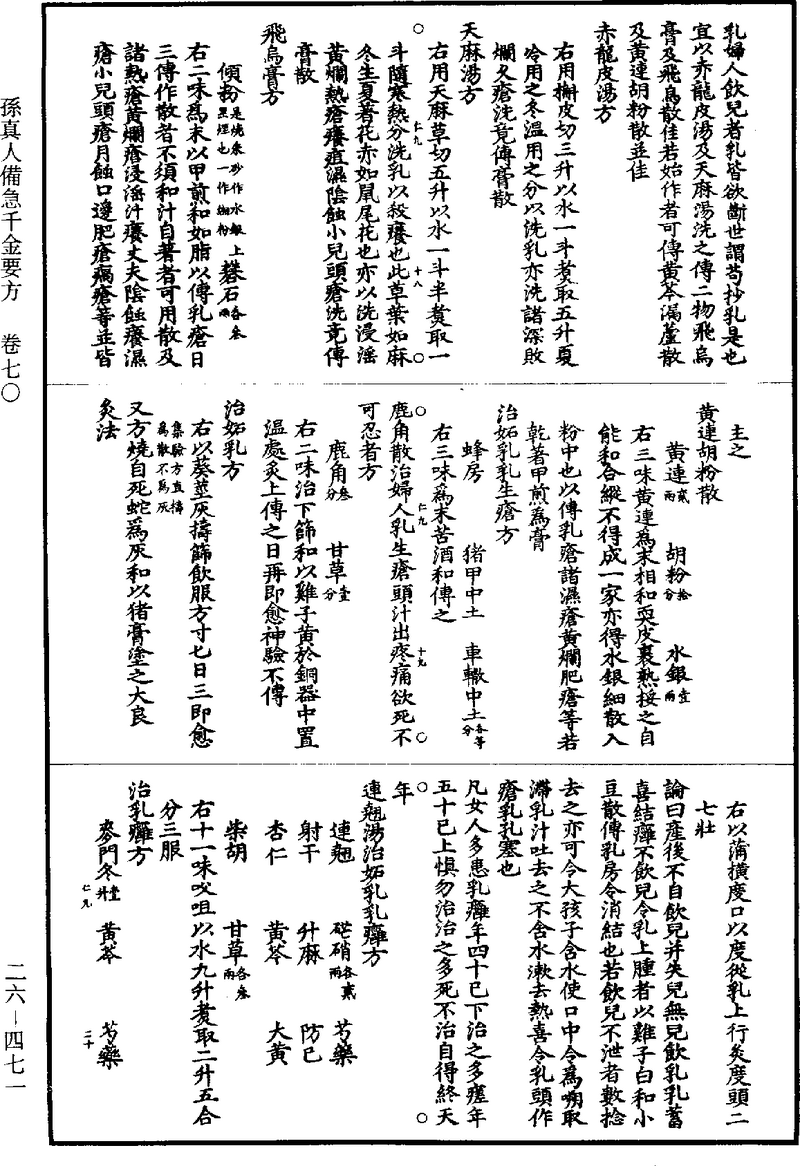 乳婦人飲兒者乳皆欲斷世謂苟抄乳是也
宜以赤龍皮湯及天麻湯洗之傅二物飛烏
膏及飛烏散佳若始作者可傅黃芩漏蘆散
及黃連胡粉散並佳
赤龍皮湯方
右用槲皮切三升以水一斗煑取五升夏
冷用之冬溫用之分以洗乳亦洗諸深敗
爛久瘡洗竟傅膏散
天麻湯方
右用天麻草切五升以水一斗半煑取一
斗隨寒熱分洗乳以殺癢也此草葉如麻
冬生夏著花赤如鼠尾花也亦以洗浸淫
黃爛熱瘡癢疽濕陰蝕小兒頭瘡洗竟傅
膏散
飛烏膏方
傾粉是燒朱砂作水銀上黑煙也一作湘粉 礬石各叁兩
右二味爲末以甲煎和如脂以傅乳瘡日
三傅作散者不須和汁自著者可用散及
諸熱瘡黃爛瘡浸淫汁癢丈夫陰蝕癢濕
瘡小兒頭瘡月蝕口邊肥瘡瘑瘡等並皆
主之
黃連胡粉散
黃連貳兩 胡粉拾分 水銀壹兩
右三味黃連爲末相和耎皮裹熟挼之自
能和合縱不得成一家亦得水銀細散入
粉中也以傅乳瘡諸濕瘡黃爛肥瘡等若
乾著甲煎爲膏
治妬乳乳生瘡方
蜂房 猪甲中土 車轍中土各等分
右三味爲末苦酒和傅之
鹿角散治婦人乳生瘡頭汁出疼痛欲死不
可忍者方
鹿角叁分 甘草壹分
右二味治下篩和以雞子黃於銅器中置
溫處炙上傅之日再即愈神驗不傳
治妬乳方
右以葵莖灰擣篩飲服方寸匕日三即愈
集驗方直擣爲散不爲灰
又方燒自死蛇爲灰和以猪膏塗之大良
灸法
右以蒲橫度口以度從乳上行灸度頭二
七壯
論曰產後不自飲兒并失兒無兒飲乳乳蓄
喜結癰不飲兒令乳上腫者以雞子白和小
豆散傅乳房令消結也若飲兒不泄者數捻
去之亦可令大孩子含水使口中冷爲嗍取
滯乳汁吐去之不含水漱去熱喜令乳頭作
瘡乳孔塞也
凡女人多患乳癰年四十已下治之多瘥年
五十已上慎勿治治之多死不治自得終天
年
連翹湯治妬乳乳癰方
連翹 芒硝各貳兩 芍藥
射干 升麻 防已
杏仁 黃芩 大黃
柴胡 甘草各叁兩
右十一味㕮咀以水九升煑取二升五合
分三服
治乳癰方
麥門冬壹升 黃芩 芍藥
孫真人備急千金要方 卷七〇
二六－四七一